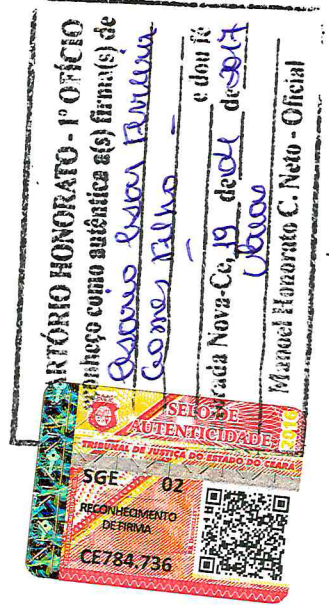 RTÓRIO HONORATO - 1º OFÍCIO
onheço como autêntica a(s) firma(s) de
Cesar Ferreira
Gomes Filho
e dou fé
rada Nova-Ce, 19 de 04 de 2017
Manoel Honorato C. Neto - Oficial
SELO DE
AUTENTICIDADE
2016
TRIBUNAL DE JUSTIÇA DO ESTADO DO CEARÁ
SGE 02
RECONHECIMENTO
DE FIRMA
CE784.736